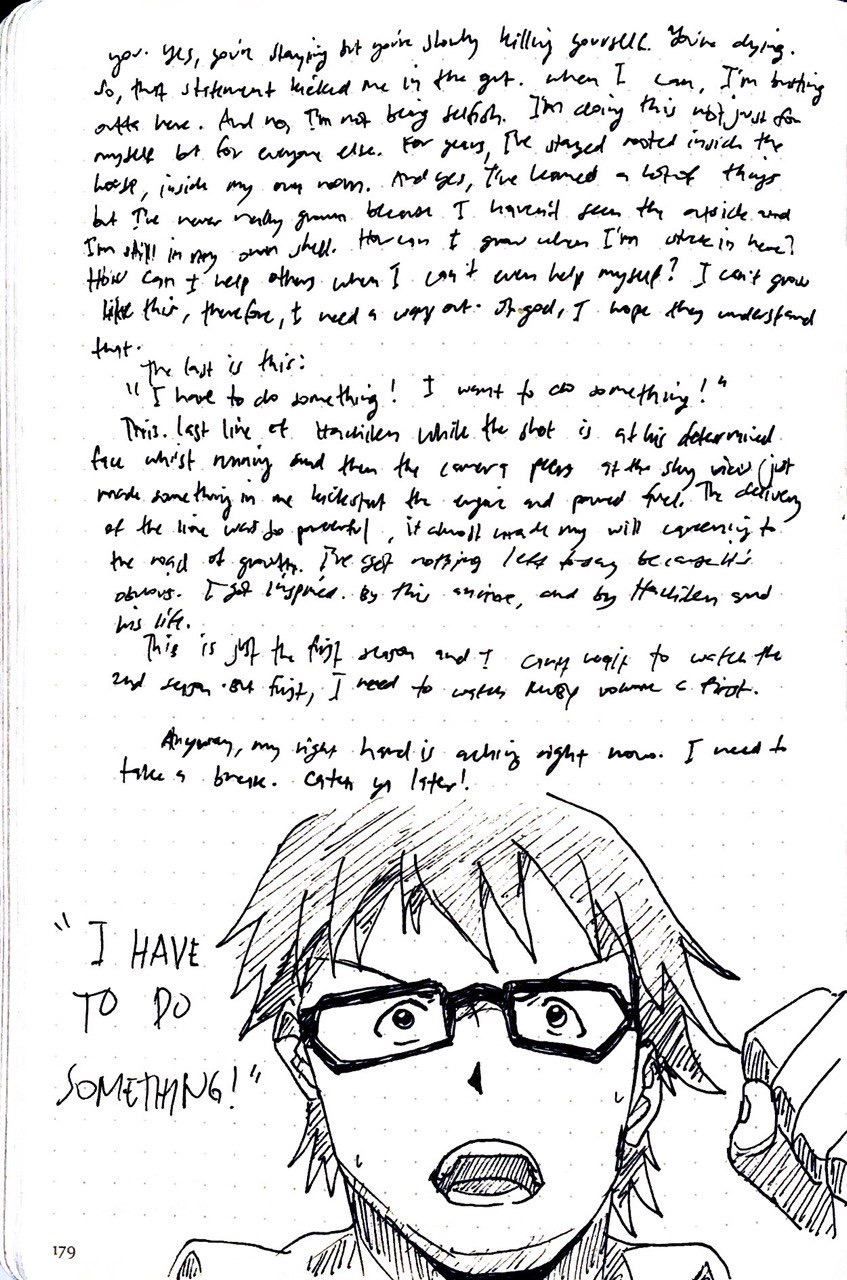 you. Yes, you're staying but you're slowly killing yourself. You're dying.
So, that statement kicked me in the gut. When I can, I'm busting
outta here. And no, I'm not being selfish. I'm doing this not just for
myself but for everyone else. For years, I've stayed rooted inside the
house, inside my own room. And yes, I've learned a lot of things
but I've never really grown because I haven't seen the outside and
I'm still in my own shell. How can I grow when I'm stuck in here?
How can I help others when I can't even help myself? I can't grow
like this, therefore, I need a way out. Oh god, I hope they understand
that.
The last is this:
"I have to do something! I want to do something!"
This last line of Hachiken while the shot is at his determined
face whilst running and then the camera peers at the sky view (just
made something in me kickstart the engine and poured fuel. The delivery
of the line was so powerful, it almost made my will agreeing to
the road of growth. I've got nothing left to say because it's
obvious. I got inspired. By this anime, and by Hachiken and
his life.
This is just the first season and I can't wait to watch the
2nd season. But first, I need to watch RWBY volume first.
Anyway, my right hand is aching right now. I need to
take a break. Catch ya later!
"I HAVE
TO DO
SOMETHING!"
179